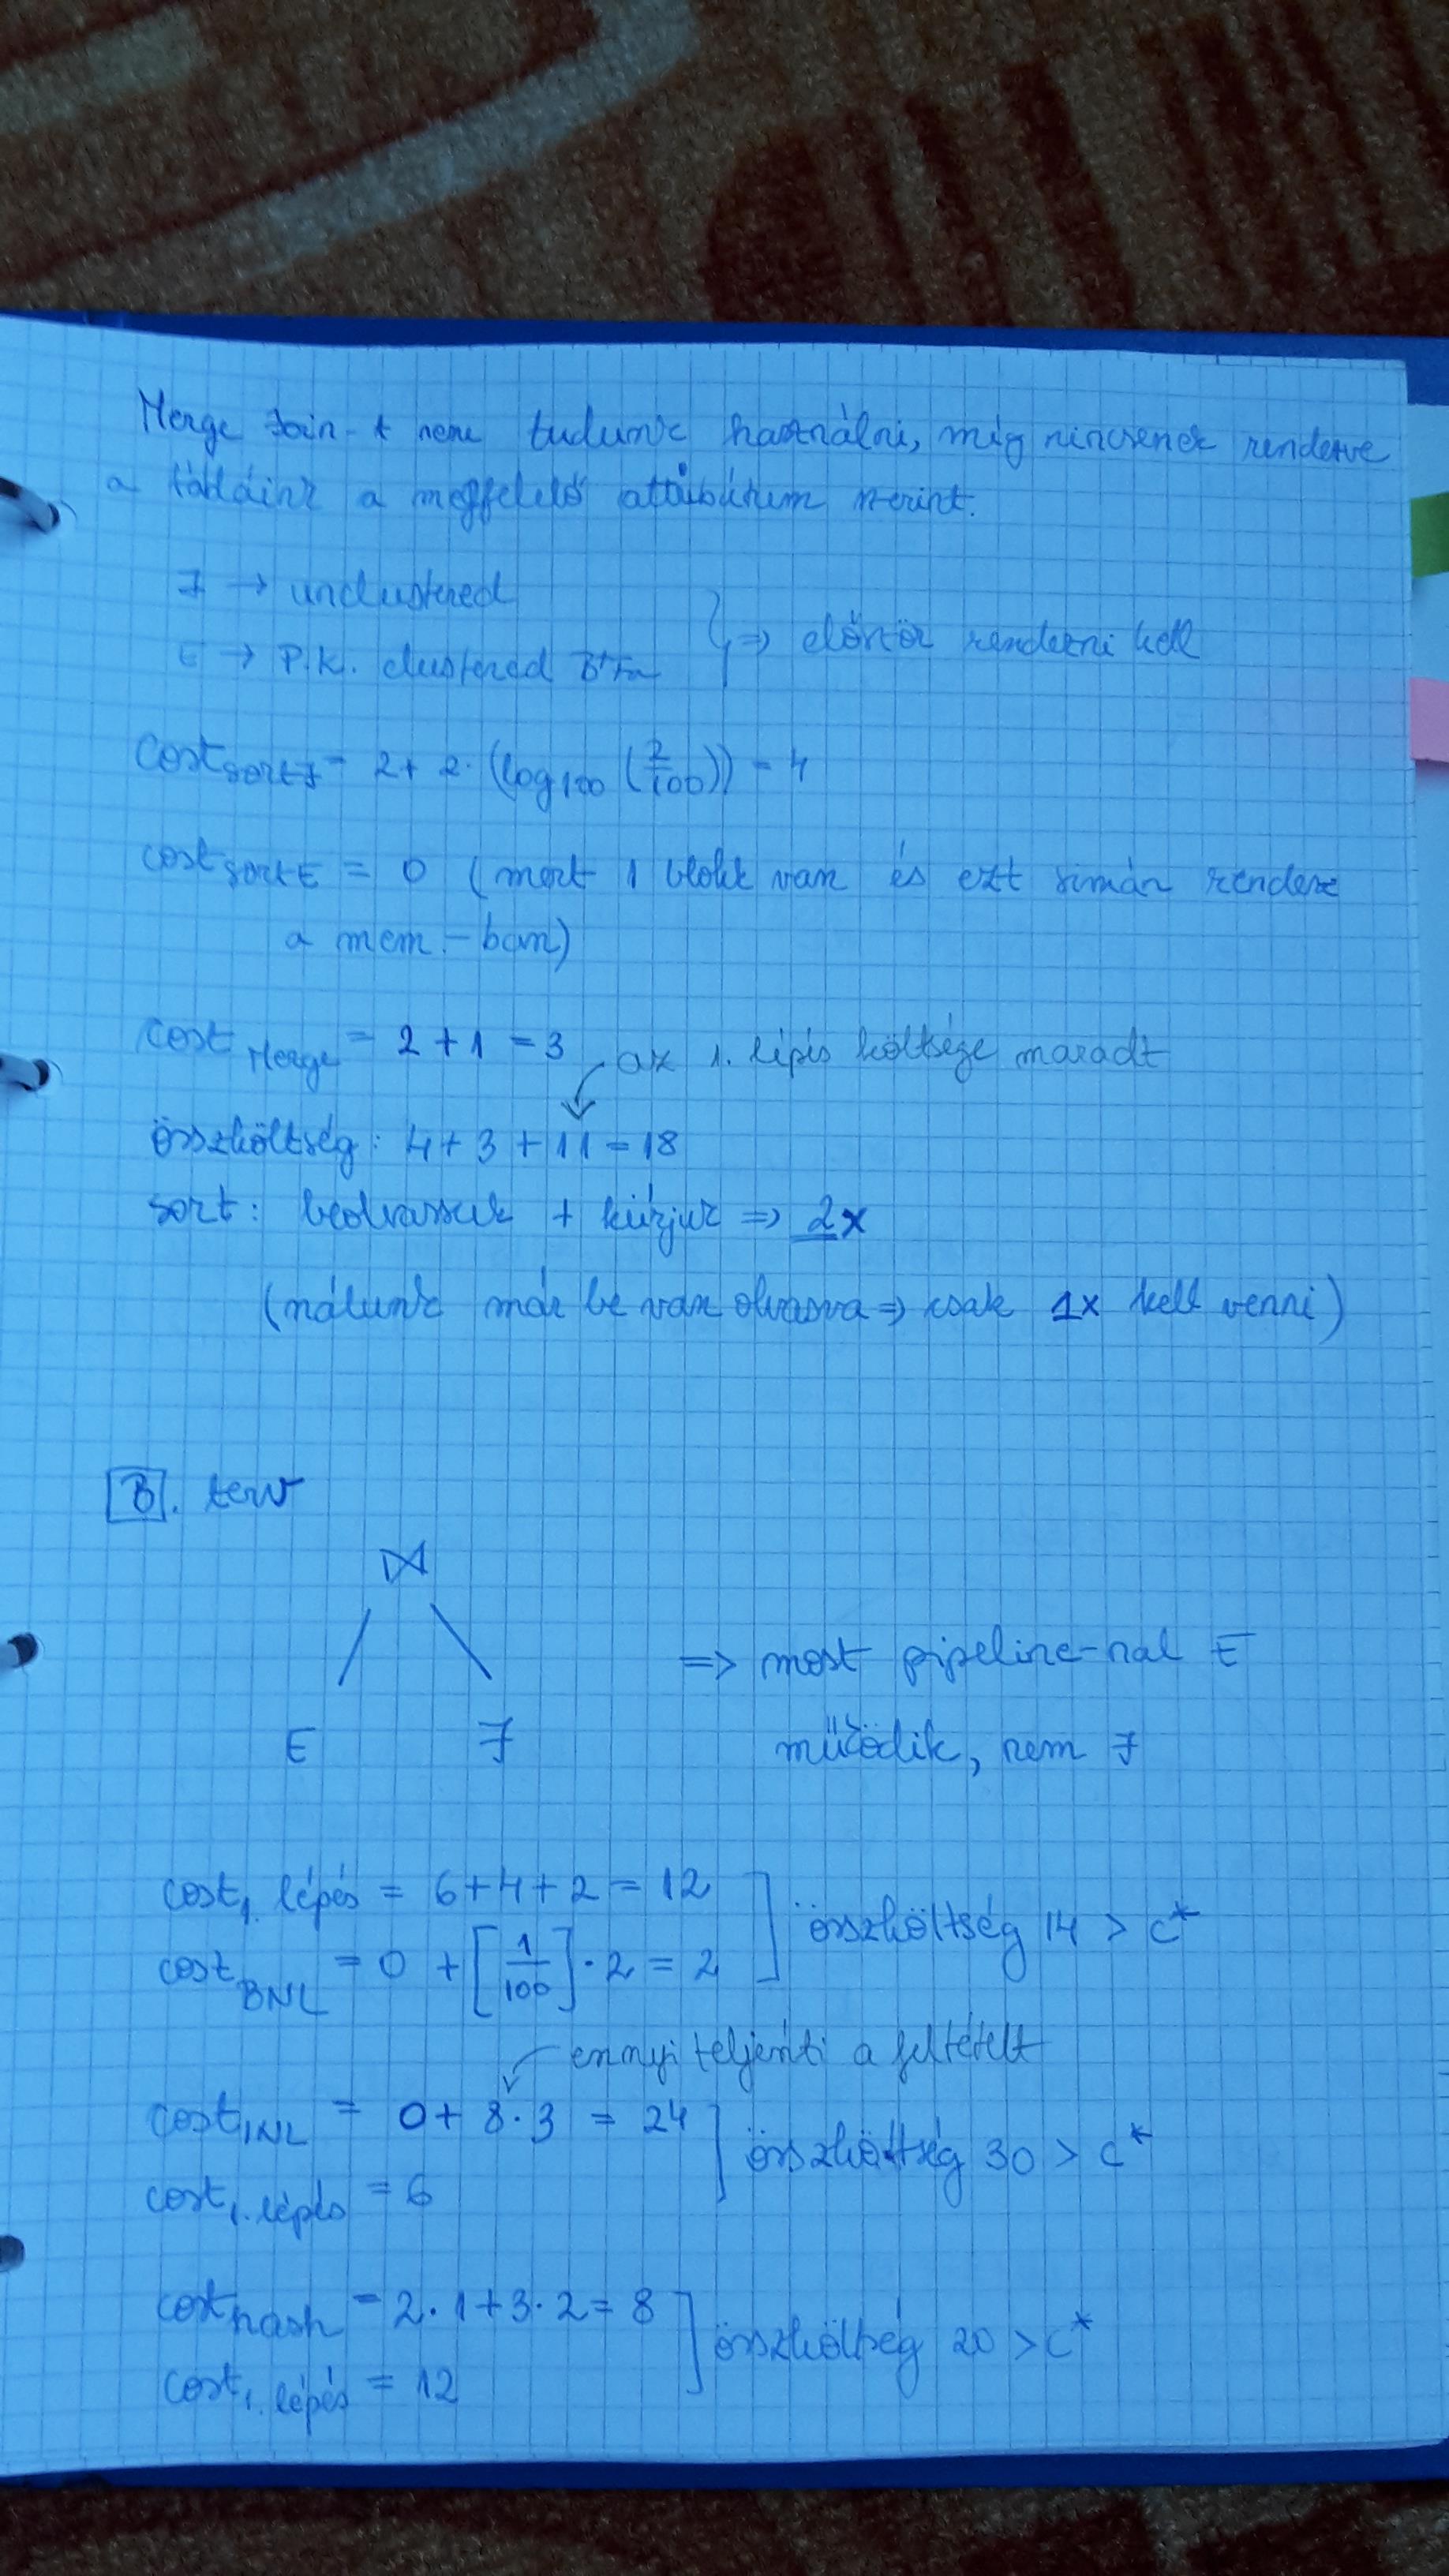 Merge Join-t nem tudunk használni, míg nincsenek rendezve
a tábláink a megfelelő attribútum szerint.
J → unclustered
E → P.K. clustered B+ Fa
} => először rendezni kell
cost sort J = 2 + 2 · (log100 (2/100)) = 4
cost sort E = 0 (mert 1 blokk van és ezt simán rendezz
a mem.-ban)
cost Merge = 2 + 1 = 3
az 1. lépés költsége maradt
összköltség: 4 + 3 + 11 = 18
sort: beolvassuk + kiírjuk => 2x
(nálunk már be van olvasva => csak 1x kell venni)
B. terv
⋈
E J
=> most pipeline-nal E
működik, nem J
cost 1. lépés = 6 + 4 + 2 = 12
cost BNL = 0 + [1/100] · 2 = 2
] összköltség 14 > c*
ennyi teljesíti a feltételt
cost INL = 0 + 8 · 3 = 24
cost 1. lépés = 6
] összköltség 30 > c*
cost hash = 2 · 1 + 3 · 2 = 8
cost 1. lépés = 12
] összköltség 20 > c*